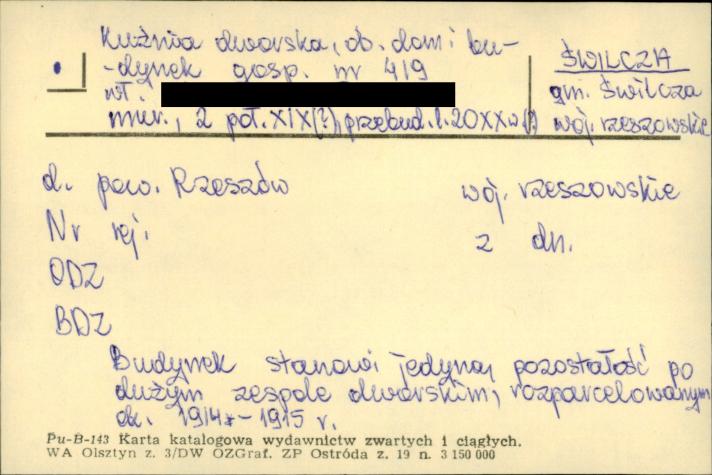 Kuźnia dworska, ob. dom i bu-
-dynek gosp. nr 419
wł.
mur., 2 poł. XIX(?), przebud. l. 20 XX w (?)
ŚWILCZA
gm. Świlcza
woj. rzeszowskie
d. pow. Rzeszów woj. rzeszowskie
Nr rej. z dn.
ODZ
BDZ
Budynek stanowi jedyną pozostałość po
dużym zespole dworskim, rozparcelowanym
ok. 1914-1915 r.
Pu-B-143 Karta katalogowa wydawnictw zwartych i ciągłych.
WA Olsztyn z. 3/DW OZGraf. ZP Ostróda z. 19 n. 3 150 000